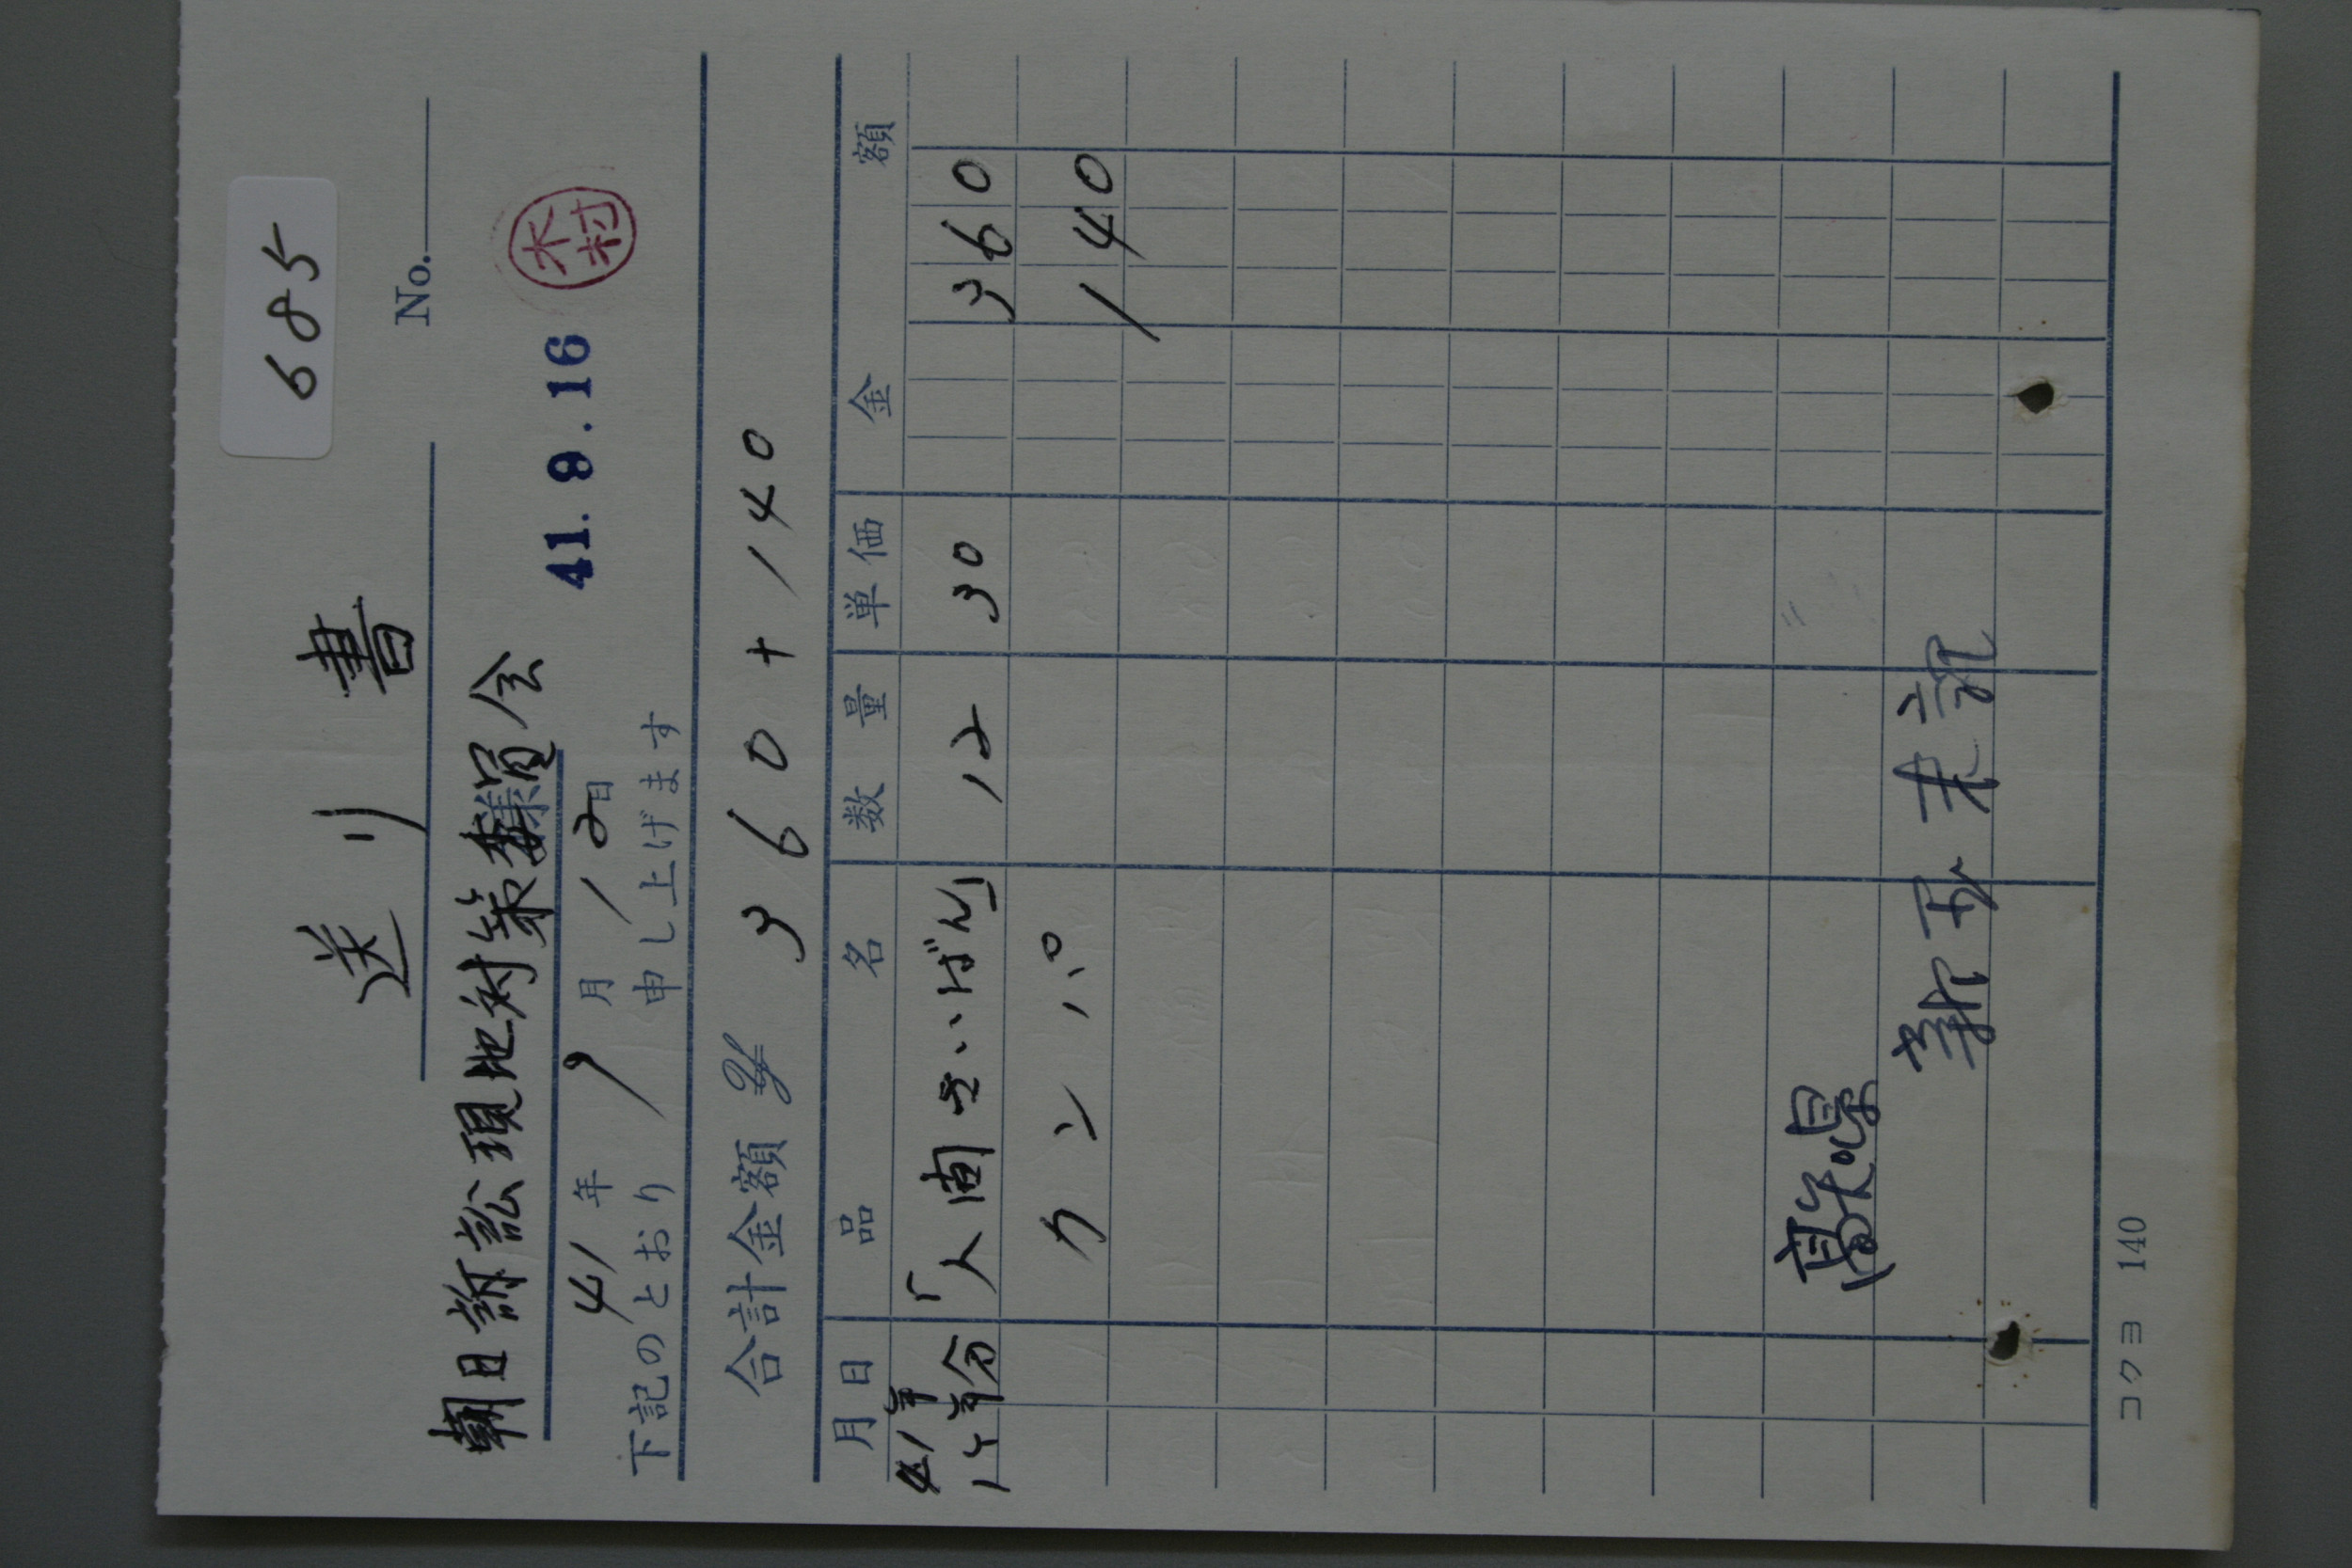 685
送り書
No.
朝日訴訟現地対策委員会
41.9.16
木村
41年9月12日
下記のとおり申し上げます
合計金額 ¥ 360+140
月日 品名 数量 単価 金額
41年
1ヶ年分 「人間さいばん」 12 30 360
カンパ 140
コクヨ 140